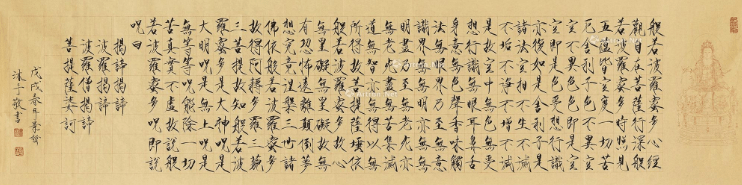 般若波羅蜜多心經
觀自在菩薩行深般
若波羅蜜多時照見
五蘊皆空度一切苦
厄舍利子色不異空
空不異色色即是空
空即是色受想行識
亦復如是舍利子是
諸法空相不生不滅
不垢不淨不增不減
是故空中無色無受
想行識無眼耳鼻舌
身意無色聲香味觸
法無眼界乃至無意
識界無無明亦無無
明盡乃至無老死亦
無老死盡無苦集滅
道無智亦無得以無
所得故菩提薩埵依
般若波羅蜜多故心
無罣礙無罣礙故無
有恐怖遠離顛倒夢
想究竟涅槃三世諸
佛依般若波羅蜜多
故得阿耨多羅三藐
三菩提故知般若波
羅蜜多是大神呪是
大明呪是無上呪是
無等等呪能除一切
苦真實不虛故說般
若波羅蜜多呪即說
呪曰
揭諦揭諦
波羅揭諦
波羅僧揭諦
菩提薩婆訶
戊戌春月
沐手敬書